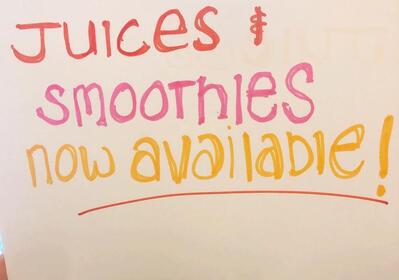 Juices &
smoothies
now available!